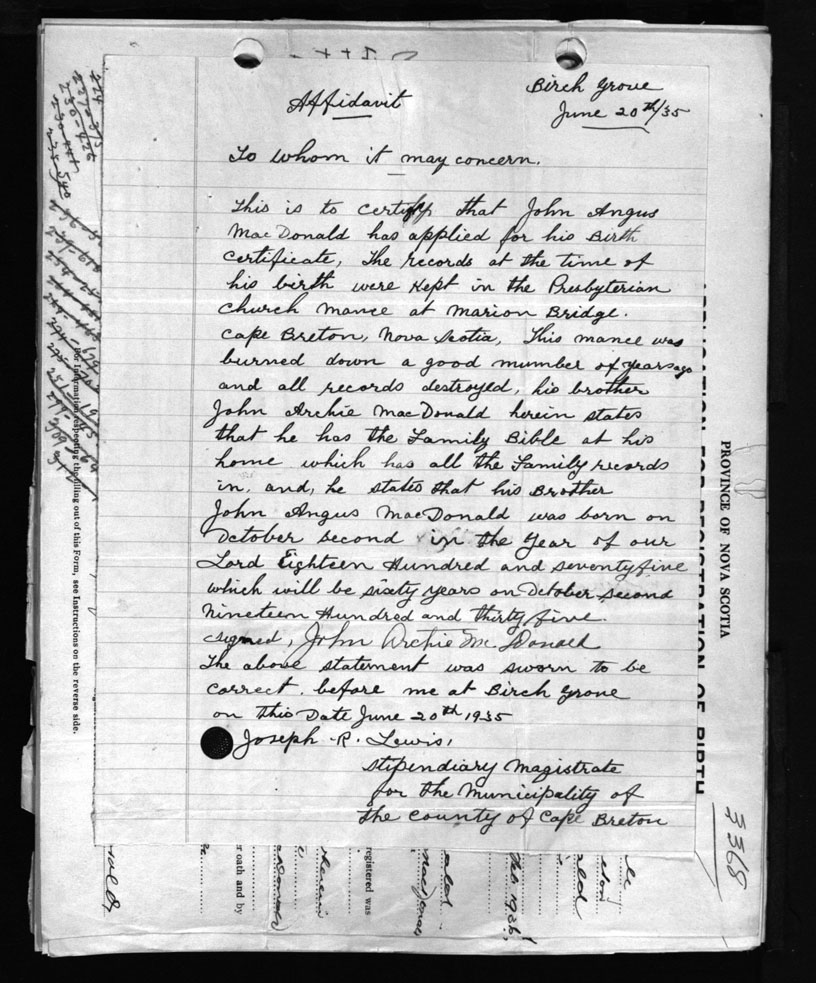 Birch Grove
Affidavit
June 20th/35
To whom it may concern.
This is to certify that John Angus
MacDonald has applied for his Birth
certificate, The records at the time of
his birth were kept in the Presbyterian
church mance at Marion Bridge.
Cape Breton, Nova Scotia, This mance was
burned down a good mumber of years ago
and all records destroyed, his brother
John Archie MacDonald herein states
that he has the Family Bible at his
home which has all the Family records
in, and, he states that his Brother
John Angus MacDonald was born on
October second in the Year of our
Lord Eighteen Hundred and seventyfive
which will be sixty years on October second
Nineteen Hundred and thirty five.
signed, John Archie McDonald
The above statement was sworn to be
correct. before me at Birch Grove
on this Date June 20th 1935
Joseph R. Lewis,
Stipendiary Magistrate
for the Municipality of
the County of Cape Breton
PROVINCE OF NOVA SCOTIA
APPLICATION FOR REGISTRATION OF BIRTH
3368
For Information respecting the filling out of this Form, see Instructions on the reverse side.
registered was
r oath and by